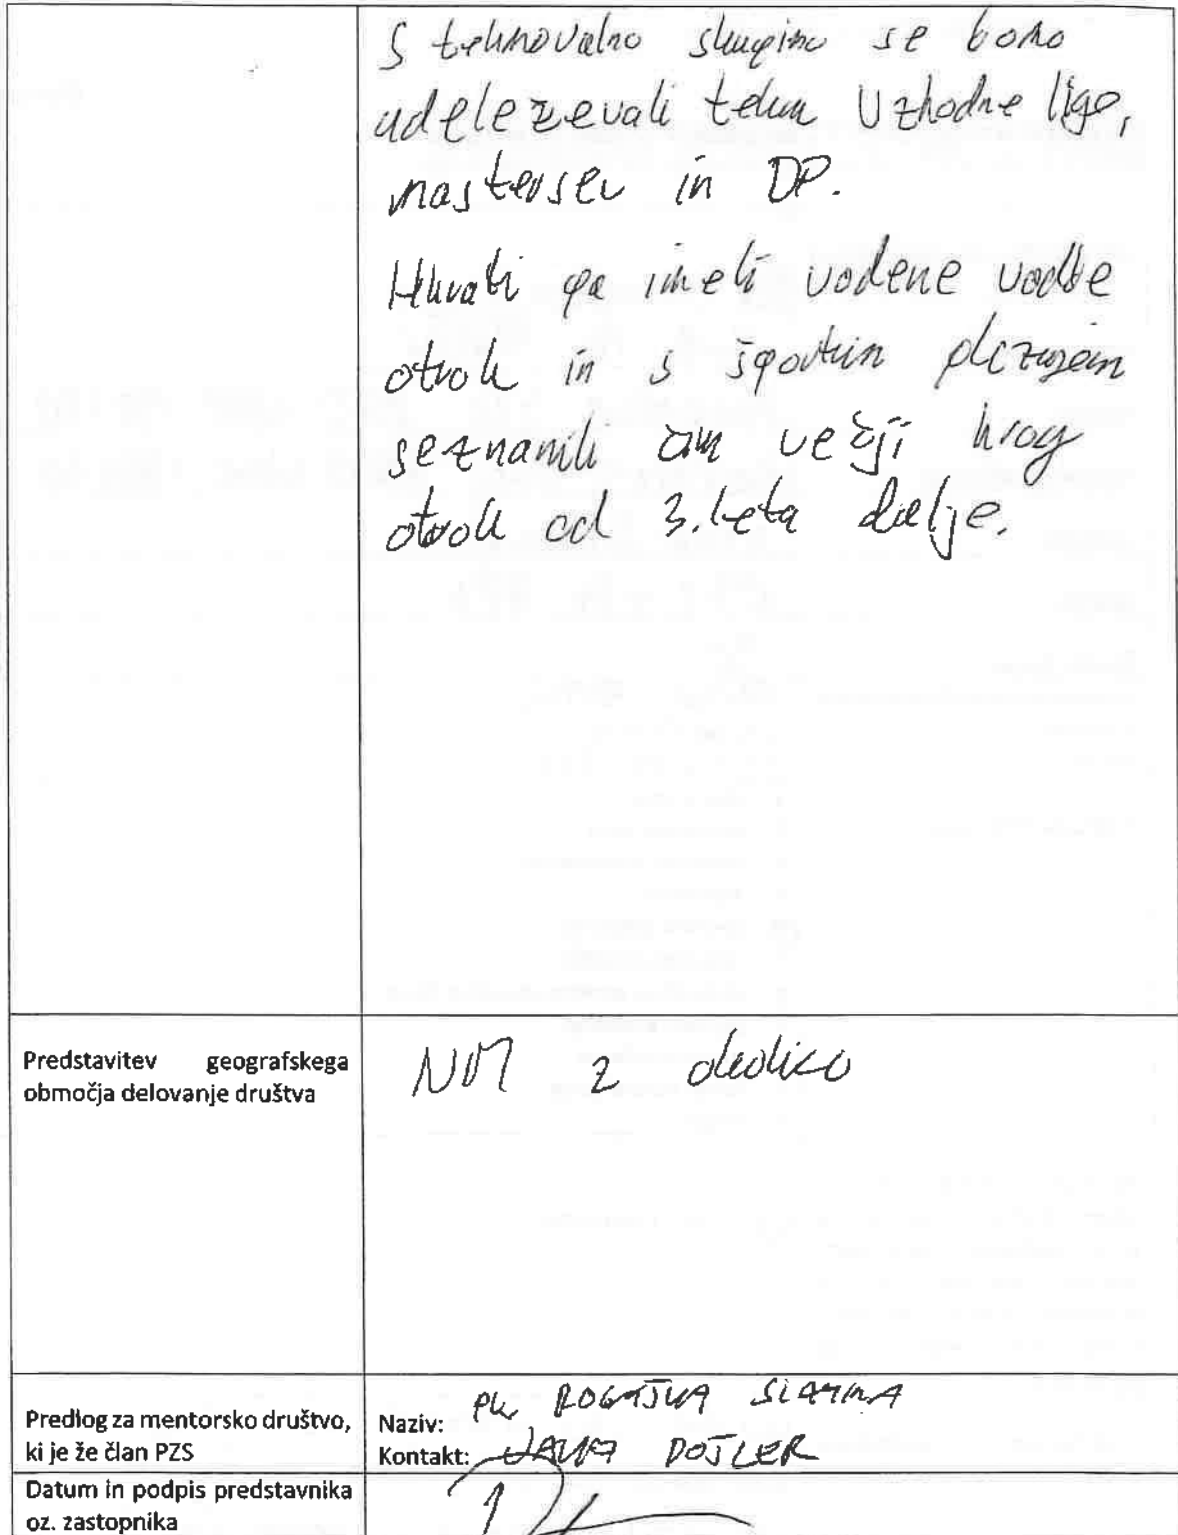 S tekmovalno skupino se bomo
udeleževali tekem Vzhodne lige,
mastersev in DP.
Hkrati pa imeli vodene vadbe
otrok in s športnim plezanjem
seznanili čim večji krog
otrok od 3. leta dalje.
Predstavitev geografskega
območja delovanje društva
NM z okolico
Predlog za mentorsko društvo,
ki je že član PZS
Naziv: PK ROGAŠKA SLATINA
Kontakt: DOŠLER
Datum in podpis predstavnika
oz. zastopnika